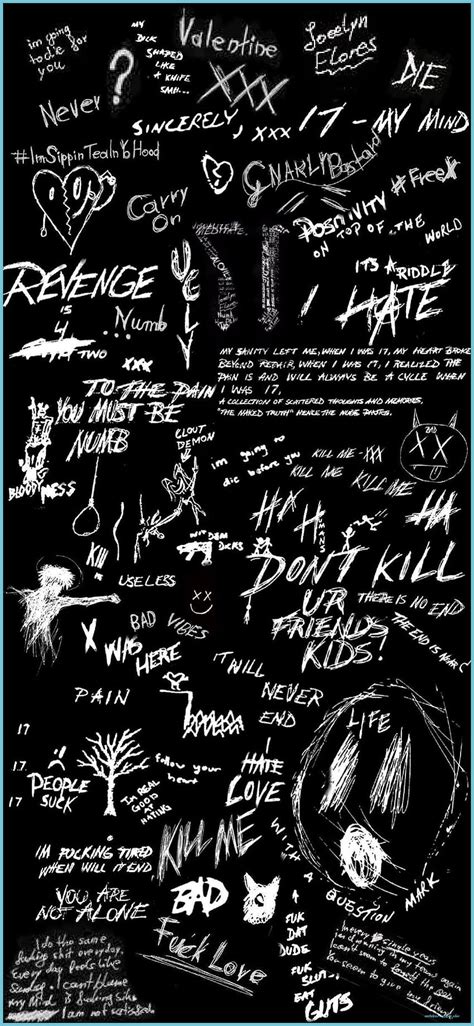 im going
to die for
you
MY
DICK
SHAPED
LIKE
A KNIFE
SMH...
Valentine
Jocelyn
Flores
DIE
Never
?
XXX
SINCERELY, XXX
17 - MY MIND
#ImSippinTeaInYoHood
Carry
On
GNARLY Bastard
#Free
POSITIVITY
ON TOP OF THE
WORLD
REVENGE
IS
4
TWO
UGLY
...Numb
XXX
IT'S A RIDDLE
I HATE
MY SANITY LEFT ME, WHEN I WAS 17, MY HEART BROKE
BEYOND REPAIR, WHEN I WAS 17, I REALIZED THE
PAIN IS AND WILL ALWAYS BE A CYCLE WHEN
I WAS 17,
A COLLECTION OF SCATTERED THOUGHTS AND MEMORIES,
"THE NAKED TRUTH" HENCE THE NUDE PHOTOS.
TO THE PAIN
YOU MUST BE
NUMB
CLOUT
DEMON
im going to
die before you
KILL ME - XXX
KILL ME KILL ME
BLOOD MESS
HA HA
HA
HUMANS
WIT DEM
DICKS
KILL
USELESS
DON'T KILL
UR
FRIENDS
KIDS!
THERE IS NO END
THE END IS NEAR
BAD VIBES
X WAS
HERE
IT WILL
NEVER
END
PAIN
LIFE
17
17
17
PEOPLE
SUCK
follow your
heart
IM REAL
GOOD
AT
HATING
I
HATE
LOVE
KILL ME
IM FUCKING TIRED
WHEN WILL IT END
BAD
YOU ARE
NOT ALONE
Fuck Love
WITH A
QUESTION
MARK
FUK
DAT
DUDE
FUK
SLUT...
EAT
GUTS
I do the same
fucking shit everyday.
Every day feels like
Sunday. I can't blame
my Mind is fucking
I am not satisfied.